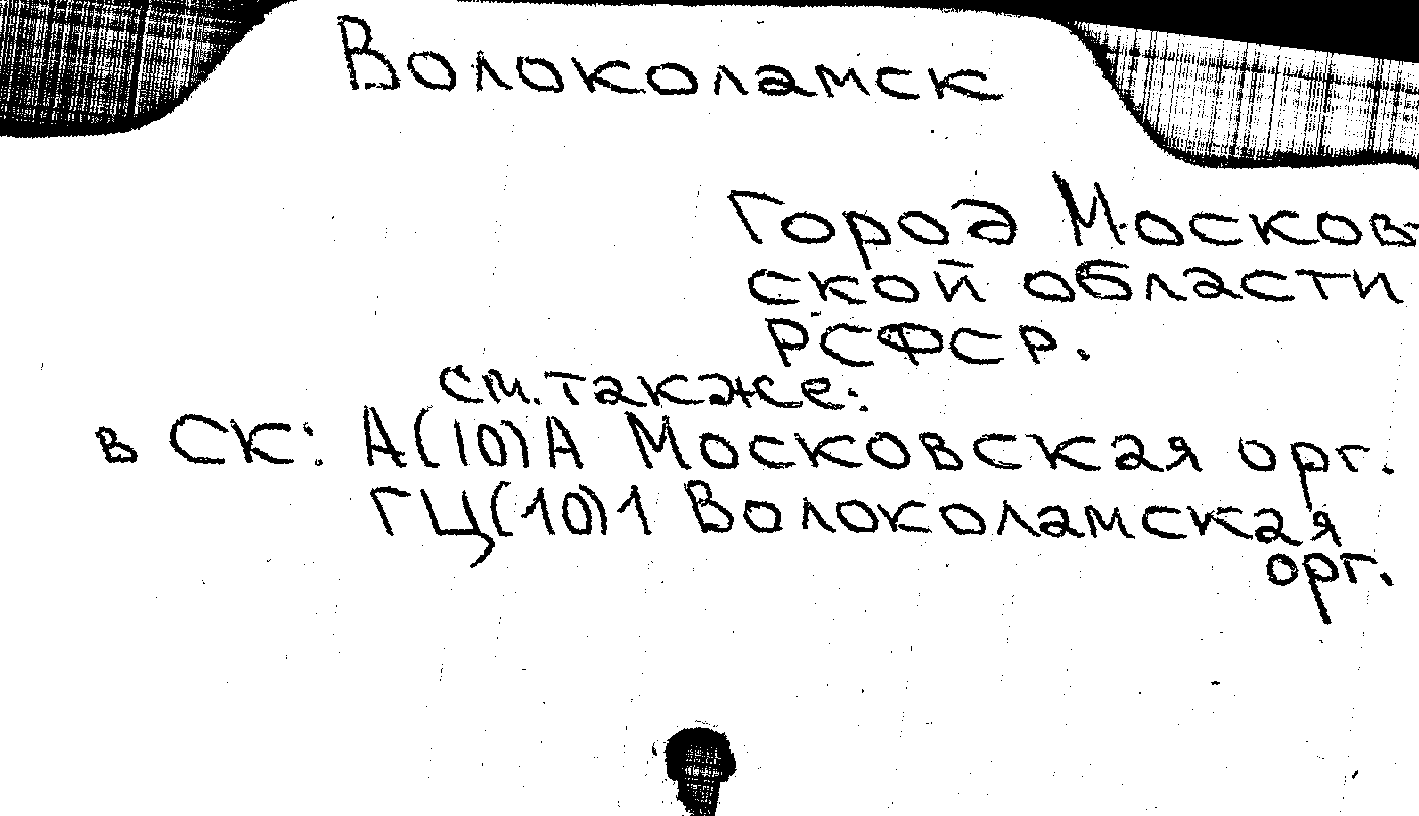 Волоколамск
Город Москов-
ской области
РСФСР.
см. также:
в СК: А(10)А Московская орг.
ГЦ(10)1 Волоколамская
орг.